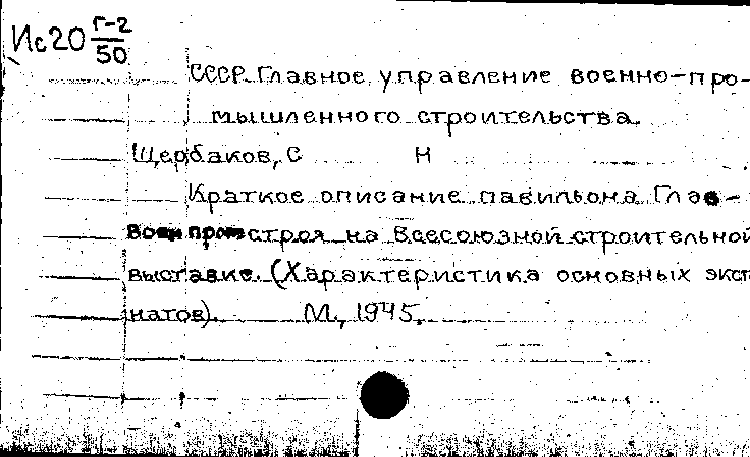 Ис20 Г-2
50
СССР. Главное управление военно-про-
мышленного строительства.
Щербаков, С Н
Краткое описание павильона Глав-
военпромстроя на Всесоюзной строительной
выставке. (Характеристика основных эксп
натов). М., 1945.